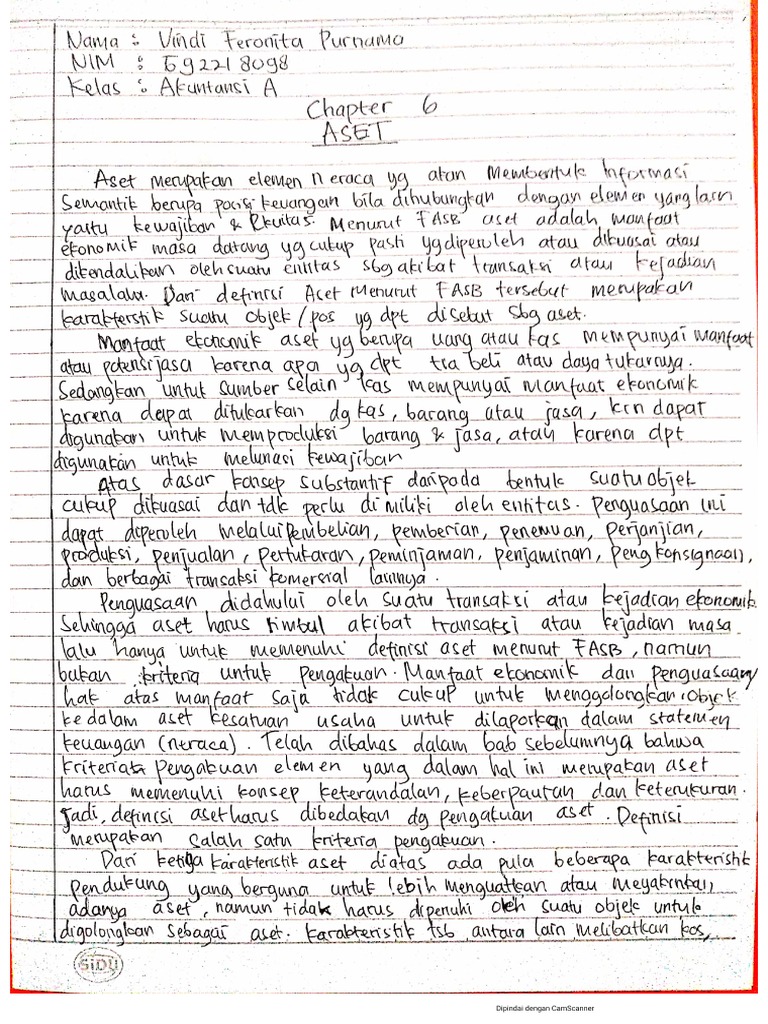 Nama : Vindi Feronita Purnama
NIM : 692218098
Kelas : Akuntansi A
Chapter 6
ASET
Aset merupakan elemen neraca yg akan Membentuk Informasi
Semantik berupa posisi keuangan bila dihubungkan dengan elemen yang lain
yaitu kewajiban & Ekuitas. Menurut FASB aset adalah manfaat
ekonomik masa datang yg cukup pasti yg diperoleh atau dikuasai atau
dikendalikan oleh suatu entitas sbg akibat transaksi atau kejadian
masa lalu. Dari definisi Aset Menurut FASB tersebut merupakan
karakterstik suatu objek / pos yg dpt disebut sbg aset.
Manfaat ekonomik aset yg berupa uang atau kas mempunyai manfaat
atau potensi jasa karena apa yg dpt ia beli atau daya tukarnya.
Sedangkan untuk sumber selain kas mempunyai manfaat ekonomik
karena dapat ditukarkan dg kas, barang atau jasa, krn dapat
digunakan untuk memproduksi barang & jasa, atau karena dpt
digunakan untuk melunasi kewajiban
Atas dasar konsep substantif daripada bentuk suatu objek
cukup dikuasai dan tdk perlu di miliki oleh entitas. Penguasaan ini
dapat diperoleh melalui Pembelian, pemberian, penemuan, Perjanjian,
produksi, penjualan, Pertukaran, peminjaman, penjaminan, pengkonsignaan,
dan berbagai transaksi komersial lainnya.
Penguasaan didahului oleh suatu transaksi atau kejadian ekonomik
Sehingga aset harus timbul akibat transaksi atau kejadian masa
lalu hanya untuk memenuhi definisi aset menurut FASB, namun
bukan kriteria untuk Pengakuan. Manfaat ekonomik dan penguasaan/
hak atas manfaat saja tidak cukup untuk menggolongkan objek
kedalam aset kesatuan usaha untuk dilaporkan dalam statemen
keuangan (neraca). Telah dibahas dalam bab sebelumnya bahwa
kriteria Pengakuan elemen yang dalam hal ini merupakan aset
harus memenuhi konsep keterandalan, keberpautan dan keterukuran.
Jadi, definisi aset harus dibedakan dg pengakuan aset. Definisi
merupakan salah satu kriteria pengakuan.
Dari ketiga karakteristik aset diatas ada pula beberapa karakteristik
Pendukung yang berguna untuk lebih menguatkan atau meyakinkan
adanya aset, namun tidak harus dipenuhi oleh suatu objek untuk
digolongkan sebagai aset. Karakteristik tsb, antara lain melibatkan kos,
SIDU
Dipindai dengan CamScanner